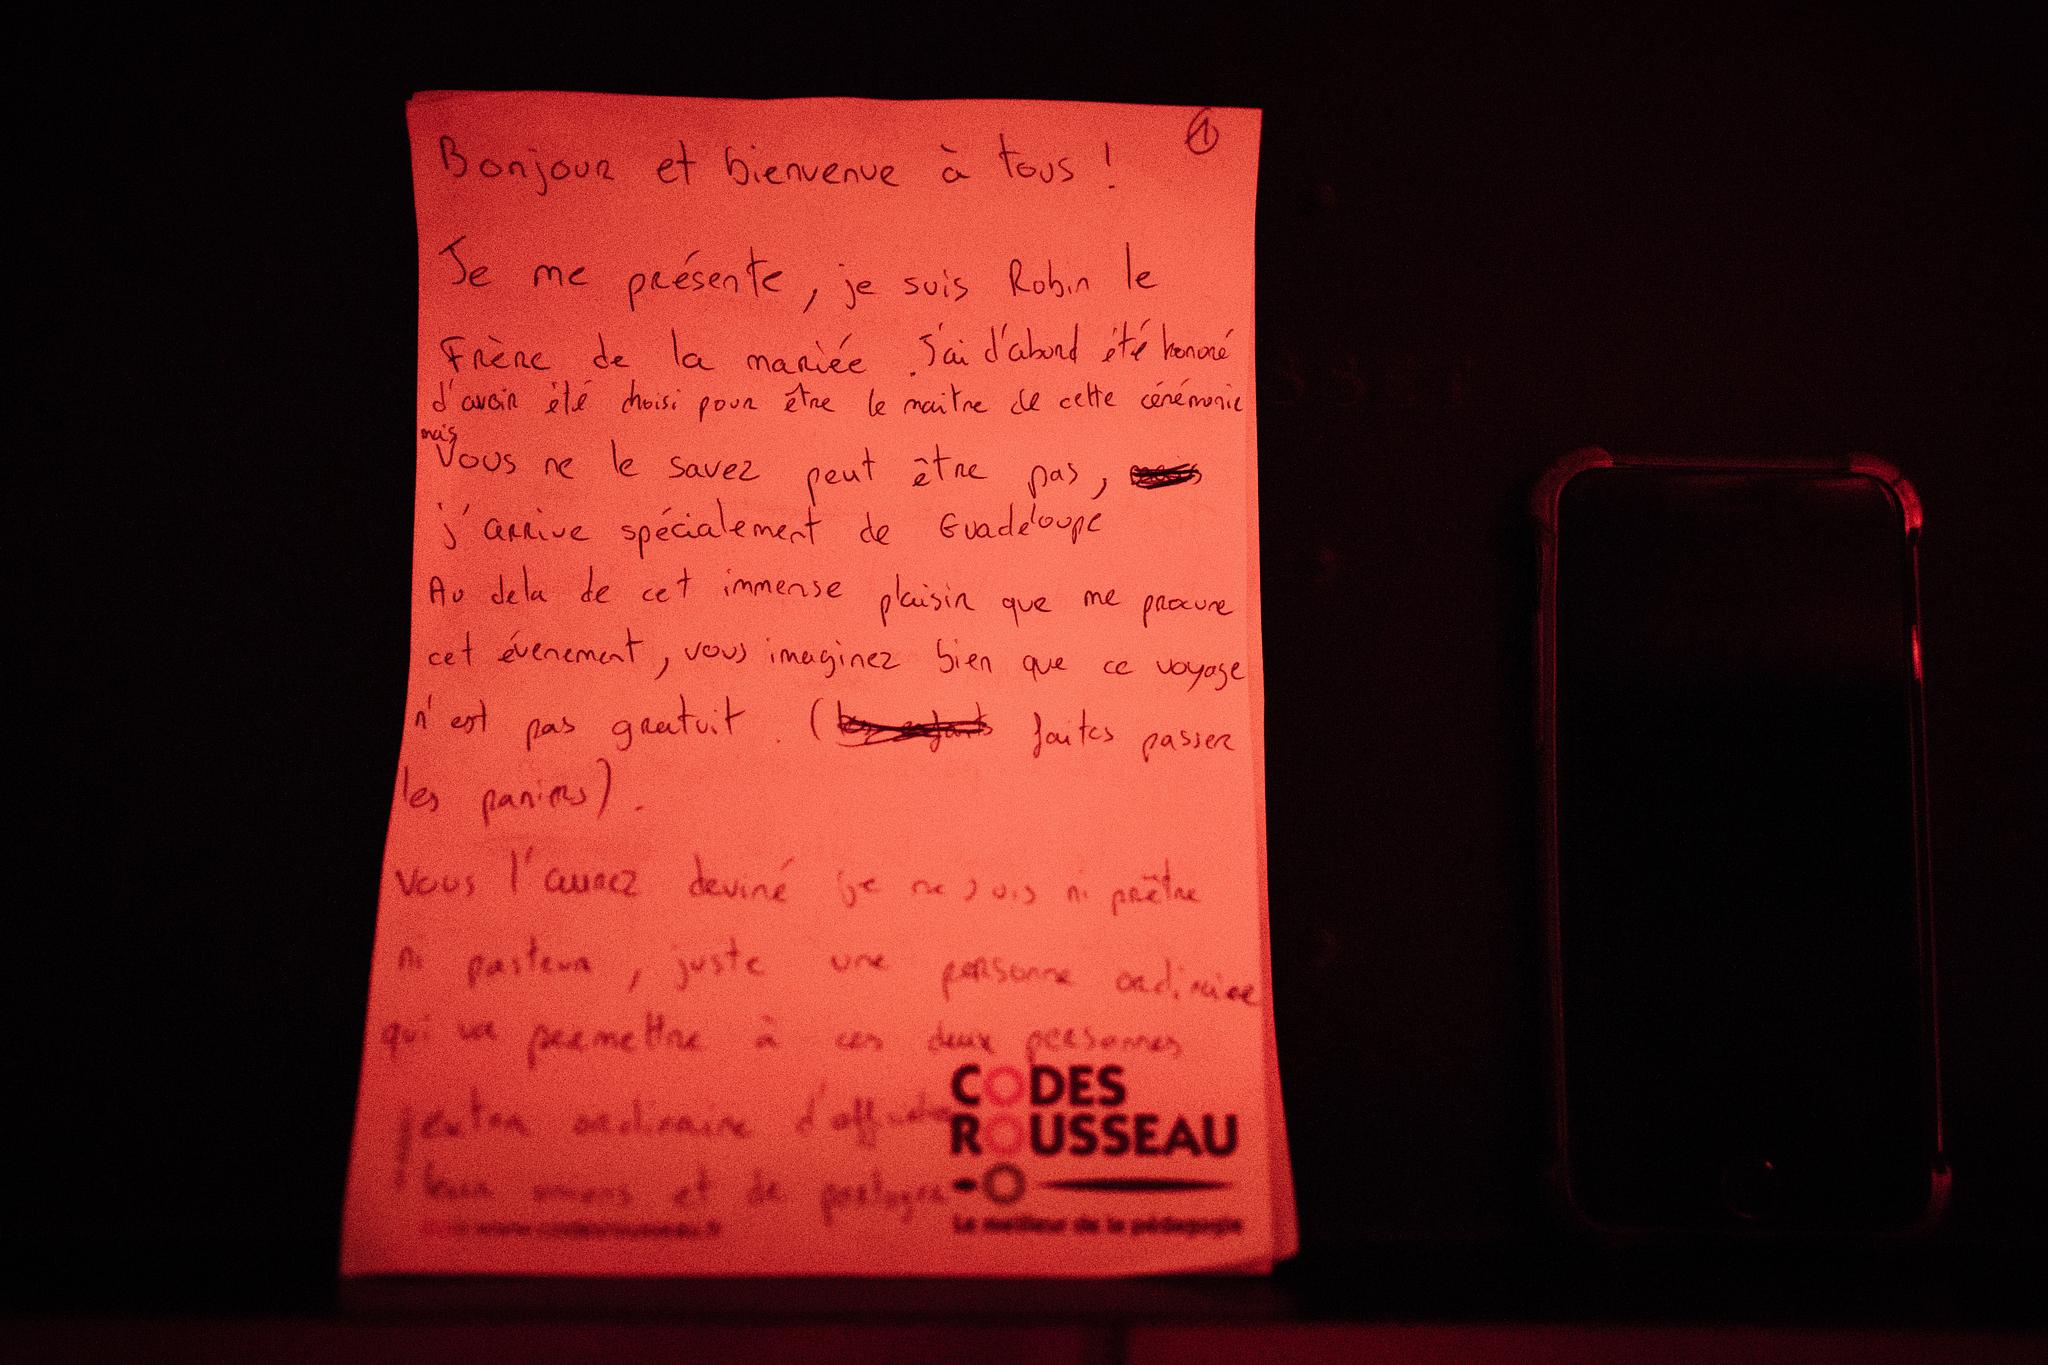 ①
Bonjour et bienvenue à tous !
Je me présente, je suis Robin le
Frère de la mariée . J'ai d'abord été honoré
d'avoir été choisi pour être le maitre de cette cérémonie
mais
Vous ne le savez peut être pas,
j'arrive spécialement de Guadeloupe
Au dela de cet immense plaisir que me procure
cet évenement, vous imaginez bien que ce voyage
n'est pas gratuit . ( faites passer
les paniers) .
Vous l'aurez deviné je ne suis ni prêtre
ni pasteur, juste une personne ordinaire
qui va permettre à ces deux personnes
extra ordinaire
et de partager
CODES
ROUSSEAU
Le meilleur de la pédagogie
www.codesrousseau.fr